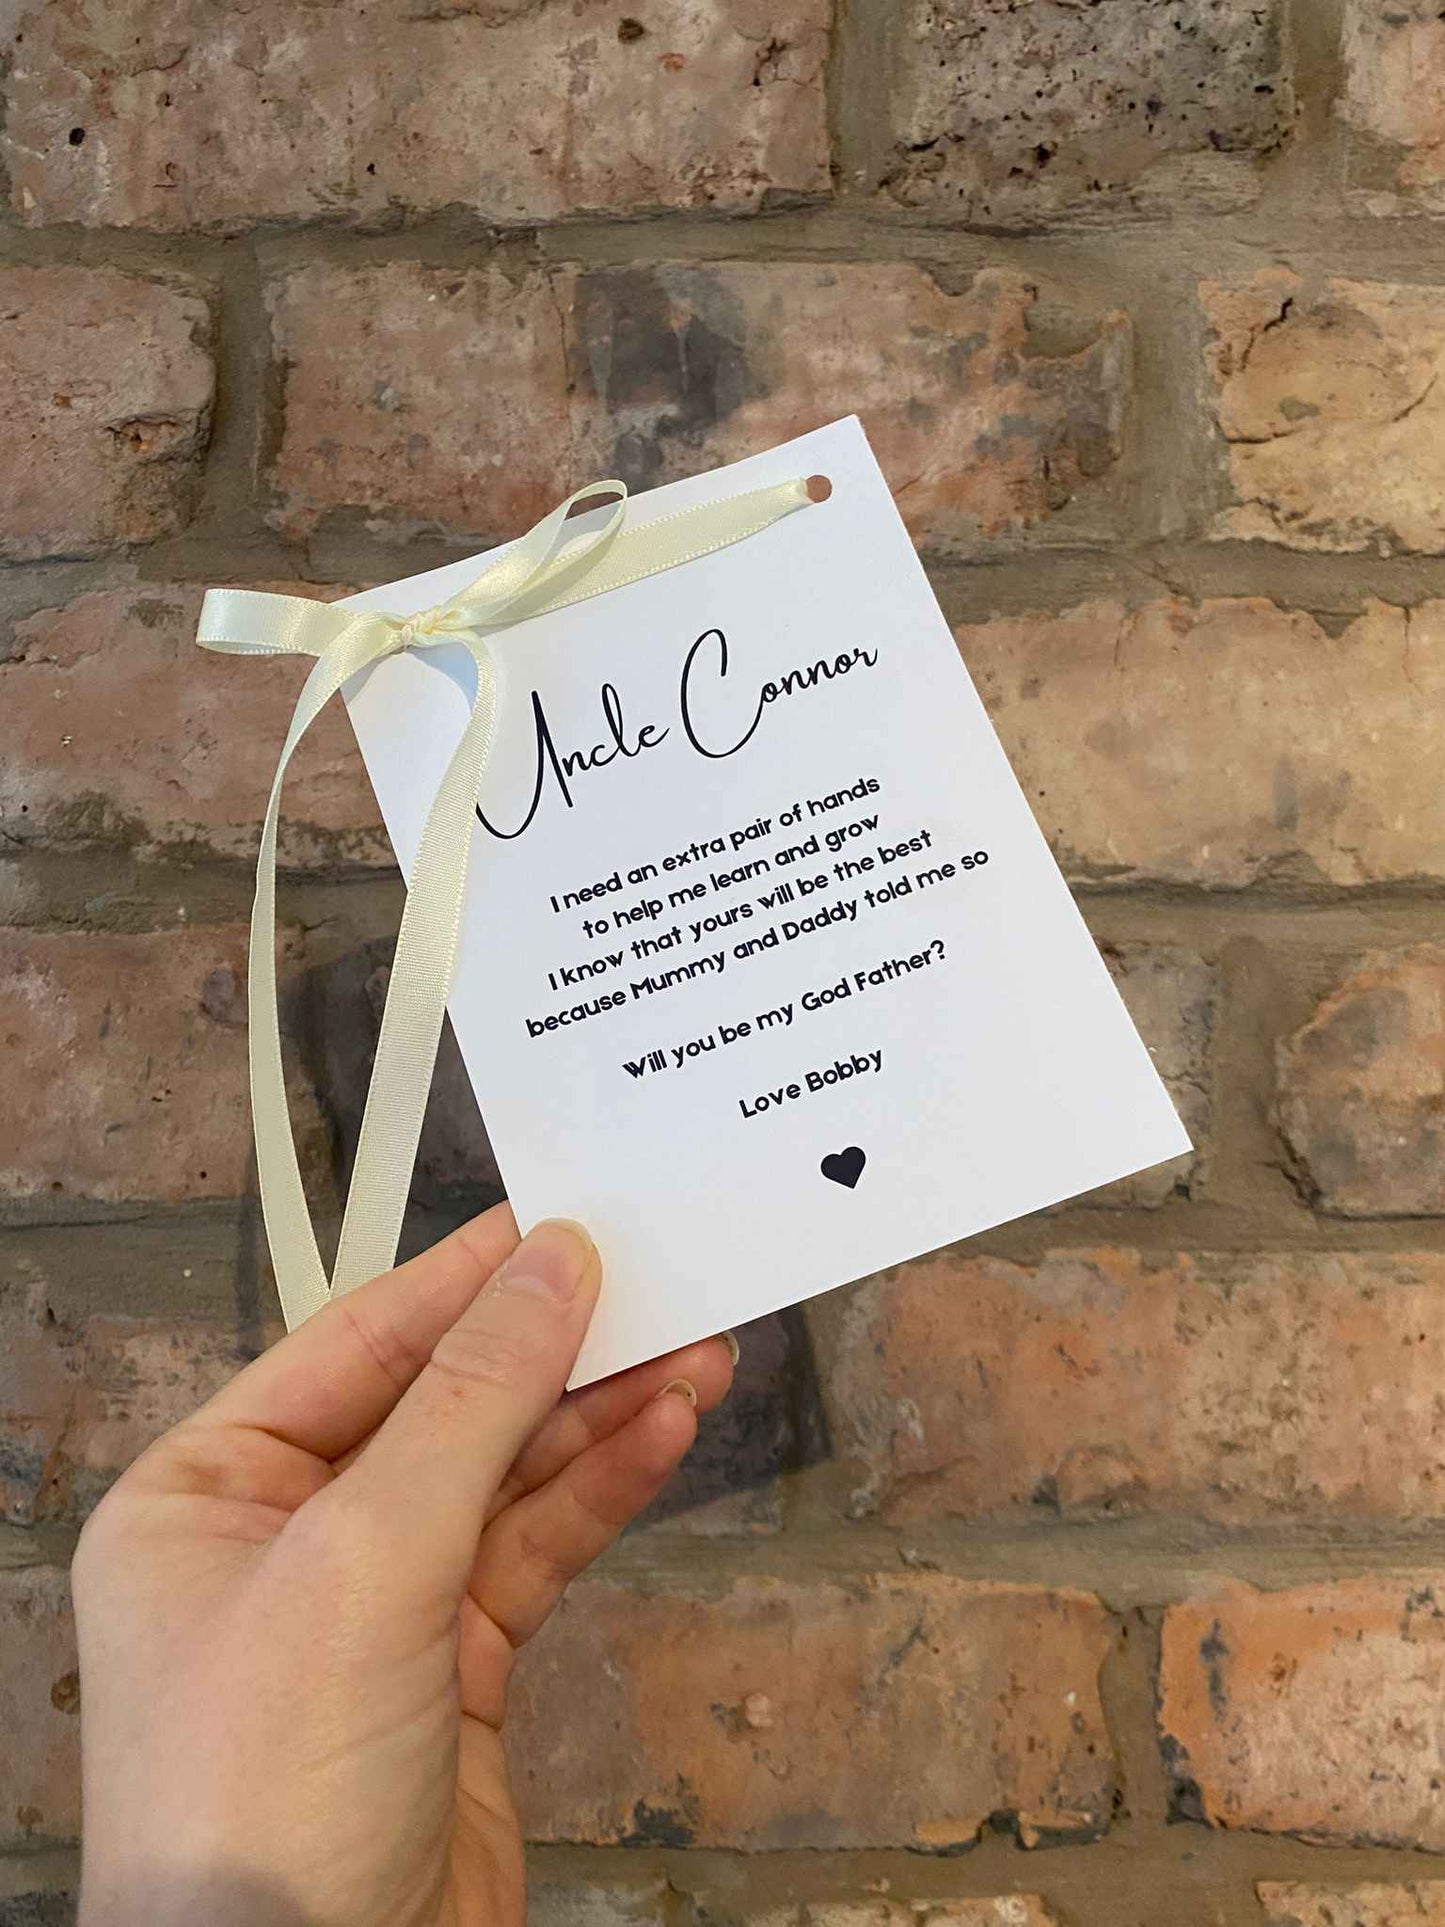 Uncle Connor
I need an extra pair of hands
to help me learn and grow
I know that yours will be the best
because Mummy and Daddy told me so
Will you be my God Father?
Love Bobby